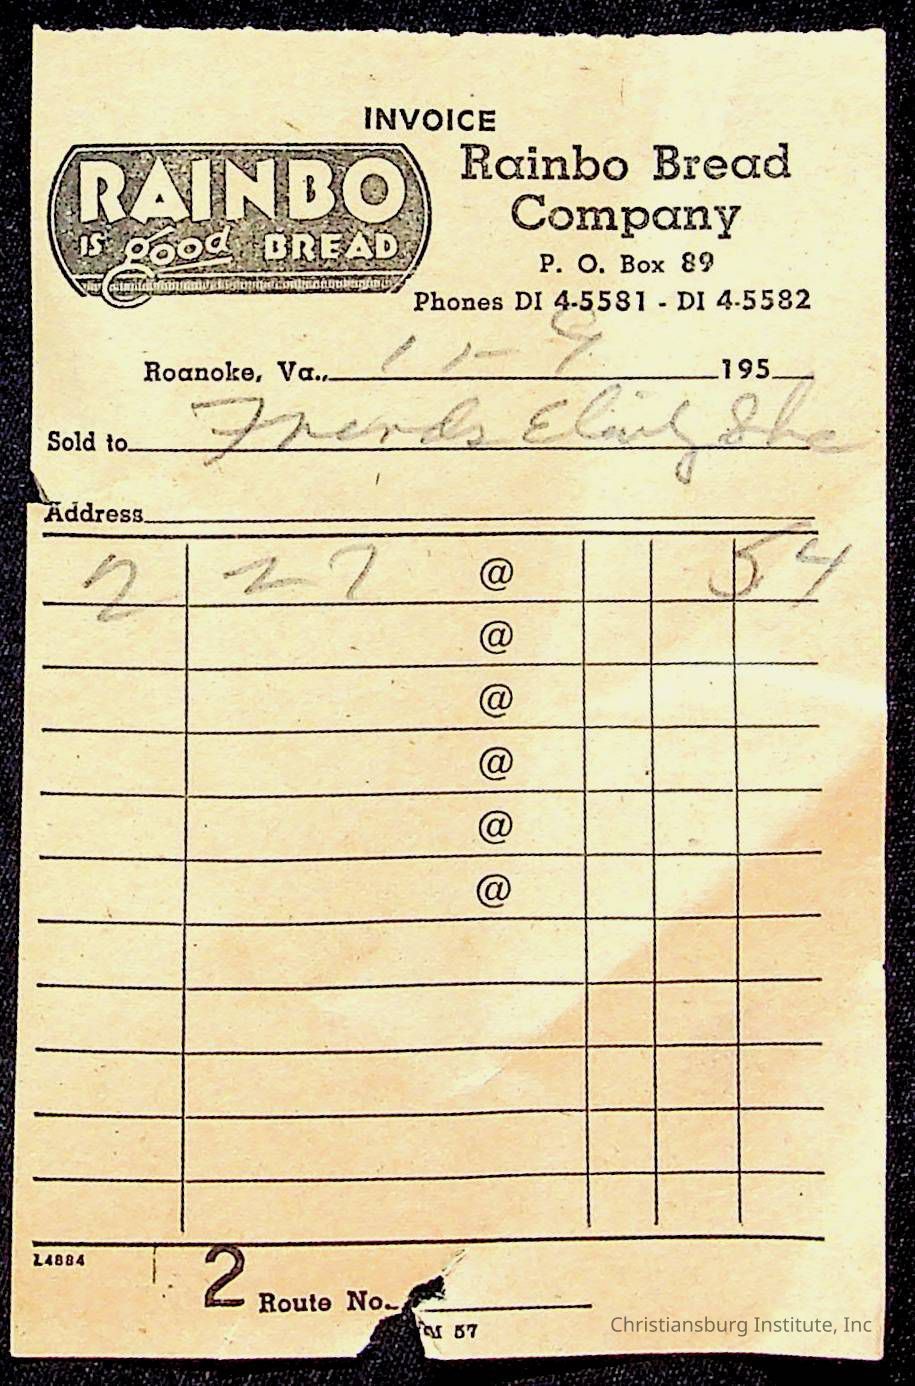 INVOICE
RAINBO
IS good BREAD
Rainbo Bread
Company
P. O. Box 89
Phones DI 4-5581 - DI 4-5582
Roanoke, Va., 1 - 9 195
Sold to Friends
Address
2 27 @ 54
@
@
@
@
@
L4884
2 Route No.
M 57
Christiansburg Institute, Inc